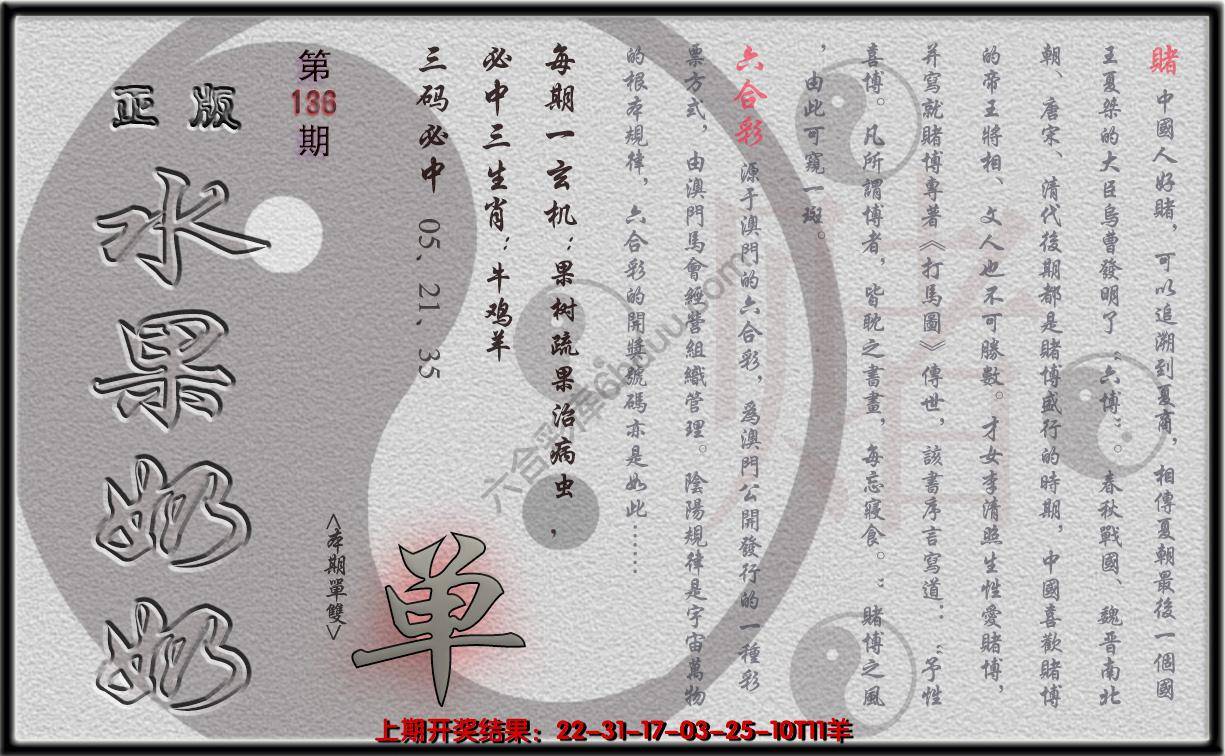 賭 中國人好賭，可以追溯到夏商，相傳夏朝最後一個國
王夏桀的大臣烏曹發明了“六博”。春秋戰國、魏晋南北
朝、唐宋、清代後期都是賭博盛行的時期，中國喜歡賭博
的帝王將相、文人也不可勝數。才女李清照生性愛賭博，
并寫就賭博專著《打馬圖》傳世，該書序言寫道：“予性
喜博。凡所謂博者，皆耽之晝書，每忘寢食。”賭博之風
，由此可窺一斑。
六合彩 源于澳門的六合彩，爲澳門公開發行的一種彩
票方式，由澳門馬會經營組織管理。陰陽規律是宇宙萬物
的根本規律，六合彩的開獎號碼亦是如此……
每期一玄机：果树疏果治病虫，
必中三生肖：牛鸡羊
三码必中 05、21、35
第
136
期
<本期單雙>
单
正版
水果奶奶
六合彩库6huuu.com
上期开奖结果：22-31-17-03-25-10T11羊